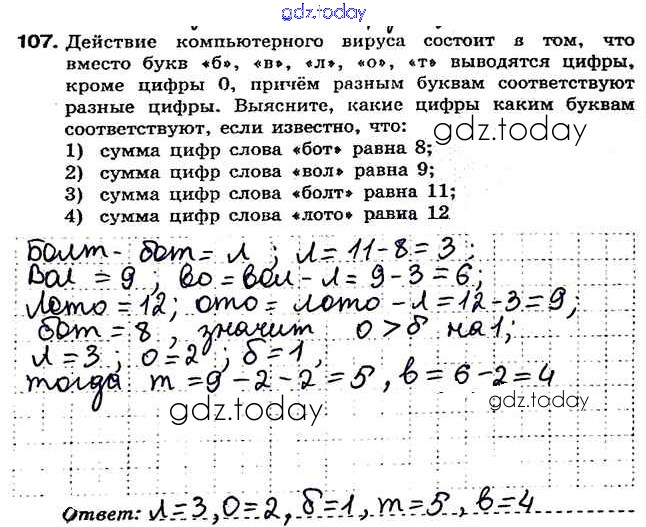 gdz.today
107. Действие компьютерного вируса состоит в том, что
вместо букв «б», «в», «л», «о», «т» выводятся цифры,
кроме цифры 0, причём разным буквам соответствуют
разные цифры. Выясните, какие цифры каким буквам
соответствуют, если известно, что:
gdz.today
1) сумма цифр слова «бот» равна 8;
2) сумма цифр слова «вол» равна 9;
3) сумма цифр слова «болт» равна 11;
4) сумма цифр слова «лото» равна 12
Болт - бот = л ; л = 11-8 = 3 ;
Вол = 9 ; во = вол - л = 9-3 = 6;
Лото = 12; ото = лото - л = 12-3 = 9;
бот = 8 , значит о > б на 1;
л = 3 ; о = 2 ; б = 1 ,
тогда т = 9 - 2 - 2 = 5 , в = 6 - 2 = 4
gdz.today
gdz.today
Ответ: л = 3, о = 2, б = 1, т = 5, в = 4